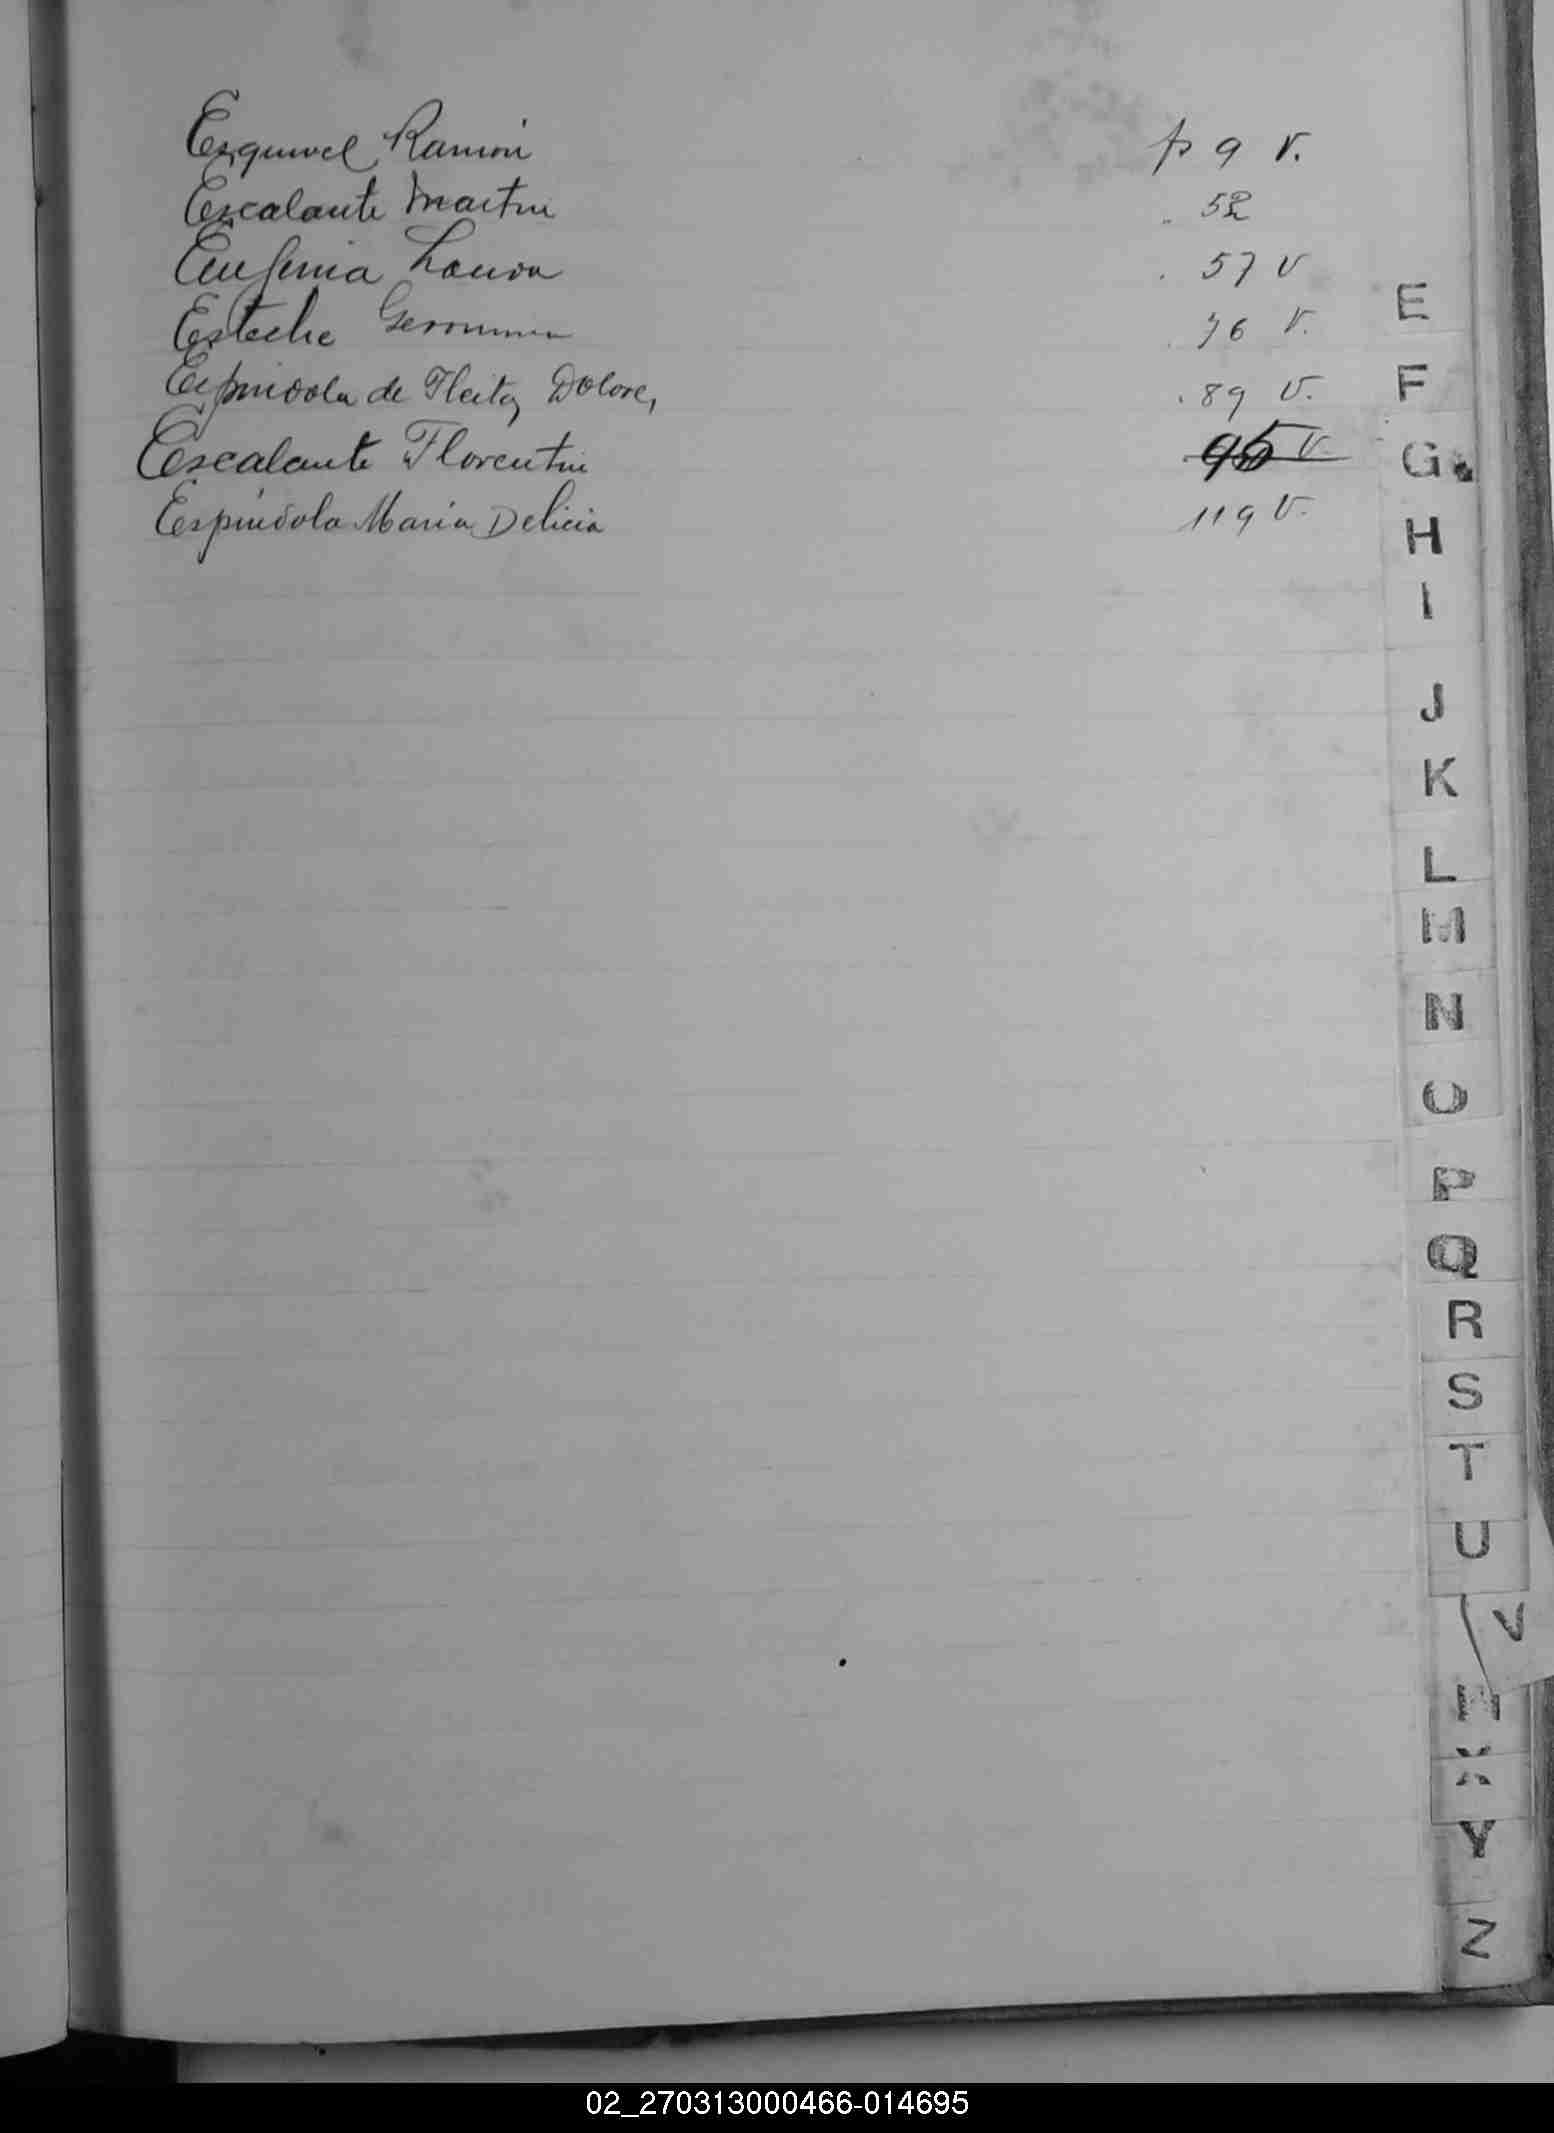 Esquivel Ramón p 9 v.
Escalante Martin . 52
Eugenia Laura . 57 v
Esteche Geronima . 76 v.
Espindola de Fleitas Dolores . 89 v.
Escalante Florentin 95 v.
Espindola Maria Delicia 119 v.
E
F
G
H
I
J
K
L
M
N
O
P
Q
R
S
T
U
V
X
Y
Z
02_270313000466-014695